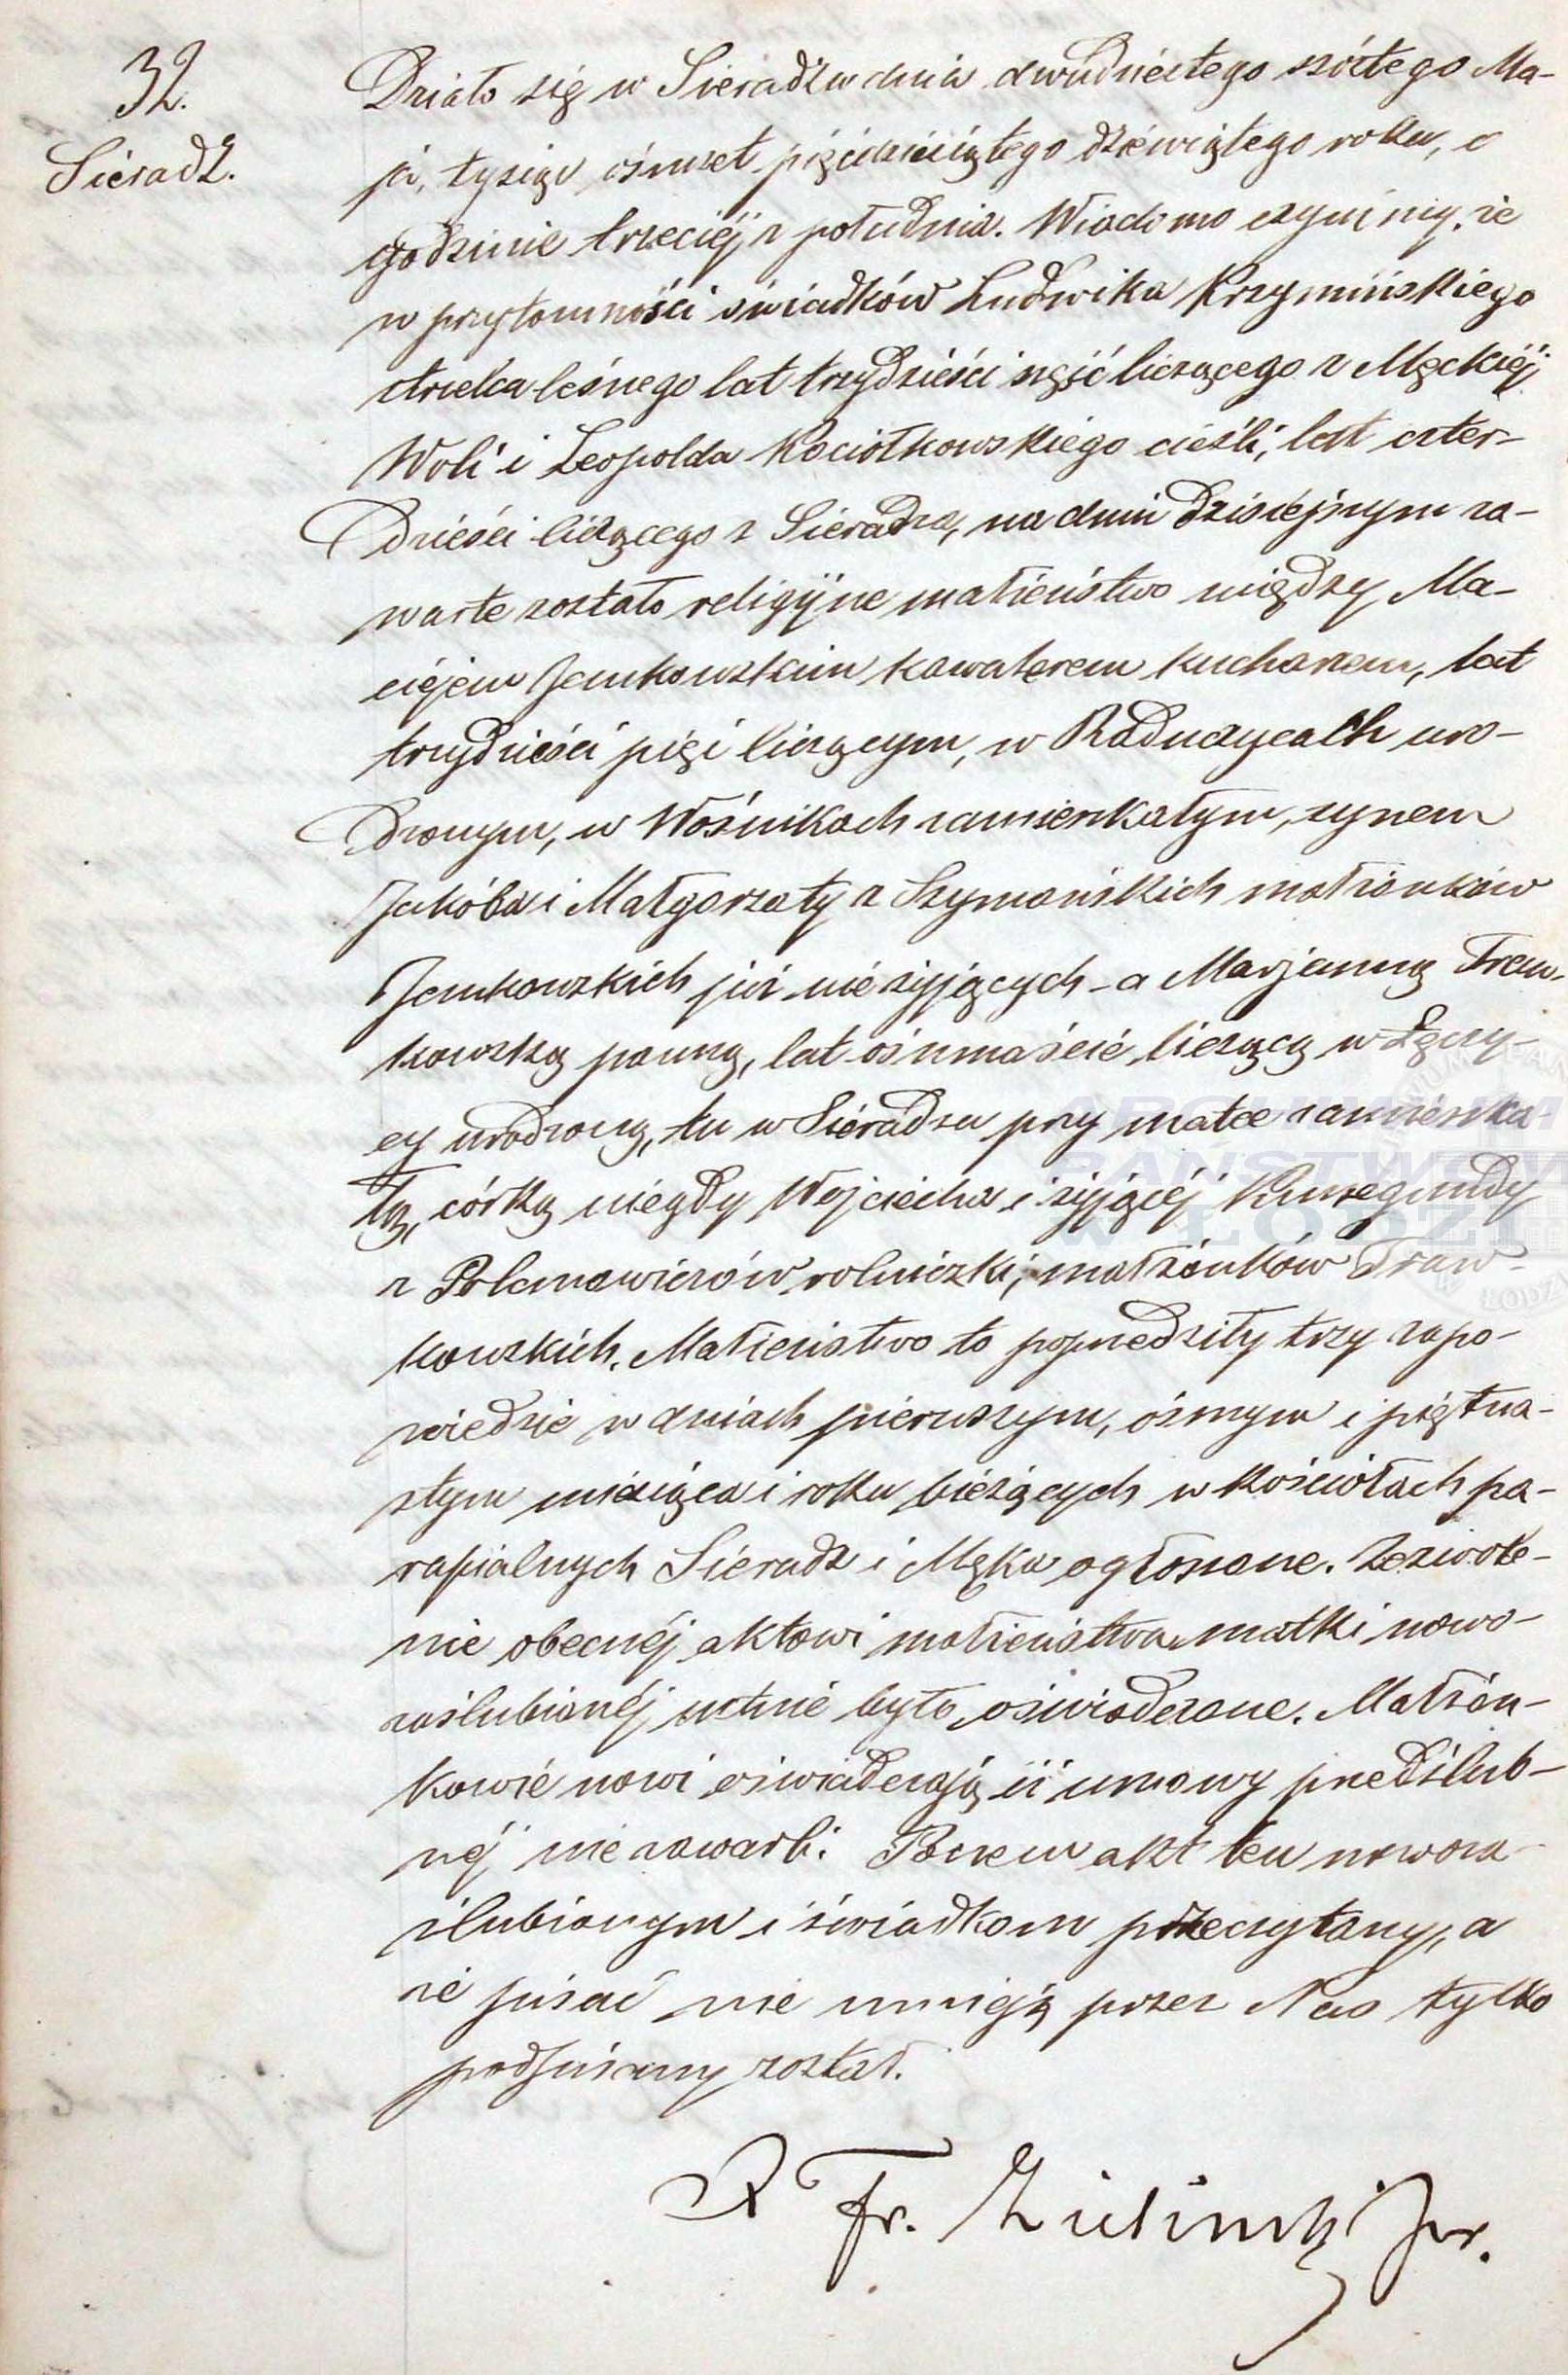 32.
Sieradz.
Działo się w Sieradzu dnia dwudziestego szóstego Ma-
ja, tysiąc ośmset pięćdziesiątego dziewiątego roku, o
godzinie trzeciéj z południa. Wiadomo czynimy, że
w przytomności świadków Ludwika Krzymińskiego
strzelca leśnego lat trzydzieści sześć liczącego z Męckiéj
Woli i Leopolda Kociołkowskiego cieśli, lat czter-
dzieści liczącego z Sieradza, na dniu dzisiejszym za-
warte zostało religijne małżeństwo między Ma-
ciejem Jankowskim kawalerem kucharzem, lat
trzydzieści pięć liczącym, w Raduczycach uro-
dzonym, w Woźnikach zamieszkałym, synem
Jakóba i Małgorzaty z Szymańskich małżonków
Jankowskich już nie żyjących - a Marjanną Traw-
kowską panną, lat ośmnaście liczącą w Łęczy-
cy urodzoną, tu w Sieradzu przy matce zamieszka-
łą, córką niegdy Wojciecha i żyjącéj Kunegundy
z rolniczki, małżonków Traw-
kowskich. Małżeństwo to poprzedziły trzy zapo-
wiedzie w dniach pierwszym, ósmym i piętna-
stym miesiąca i roku bieżących w kościołach pa-
rafialnych Sieradz i Męka ogłoszone. Zezwole-
nie obecnéj aktowi małżeństwa matki nowo-
zaślubionéj ustnie było oświadczone. Małżon-
kowie nowi oświadczają iż umowy przedślub-
néj nie zawarli. Poczem akt ten nowoza-
ślubionym i świadkom przeczytany, a
że pisać nie umieją przez Nas tylko
podpisany został.
X Fr.
ARCHIWUM
PAŃSTWOWE
W ŁODZI